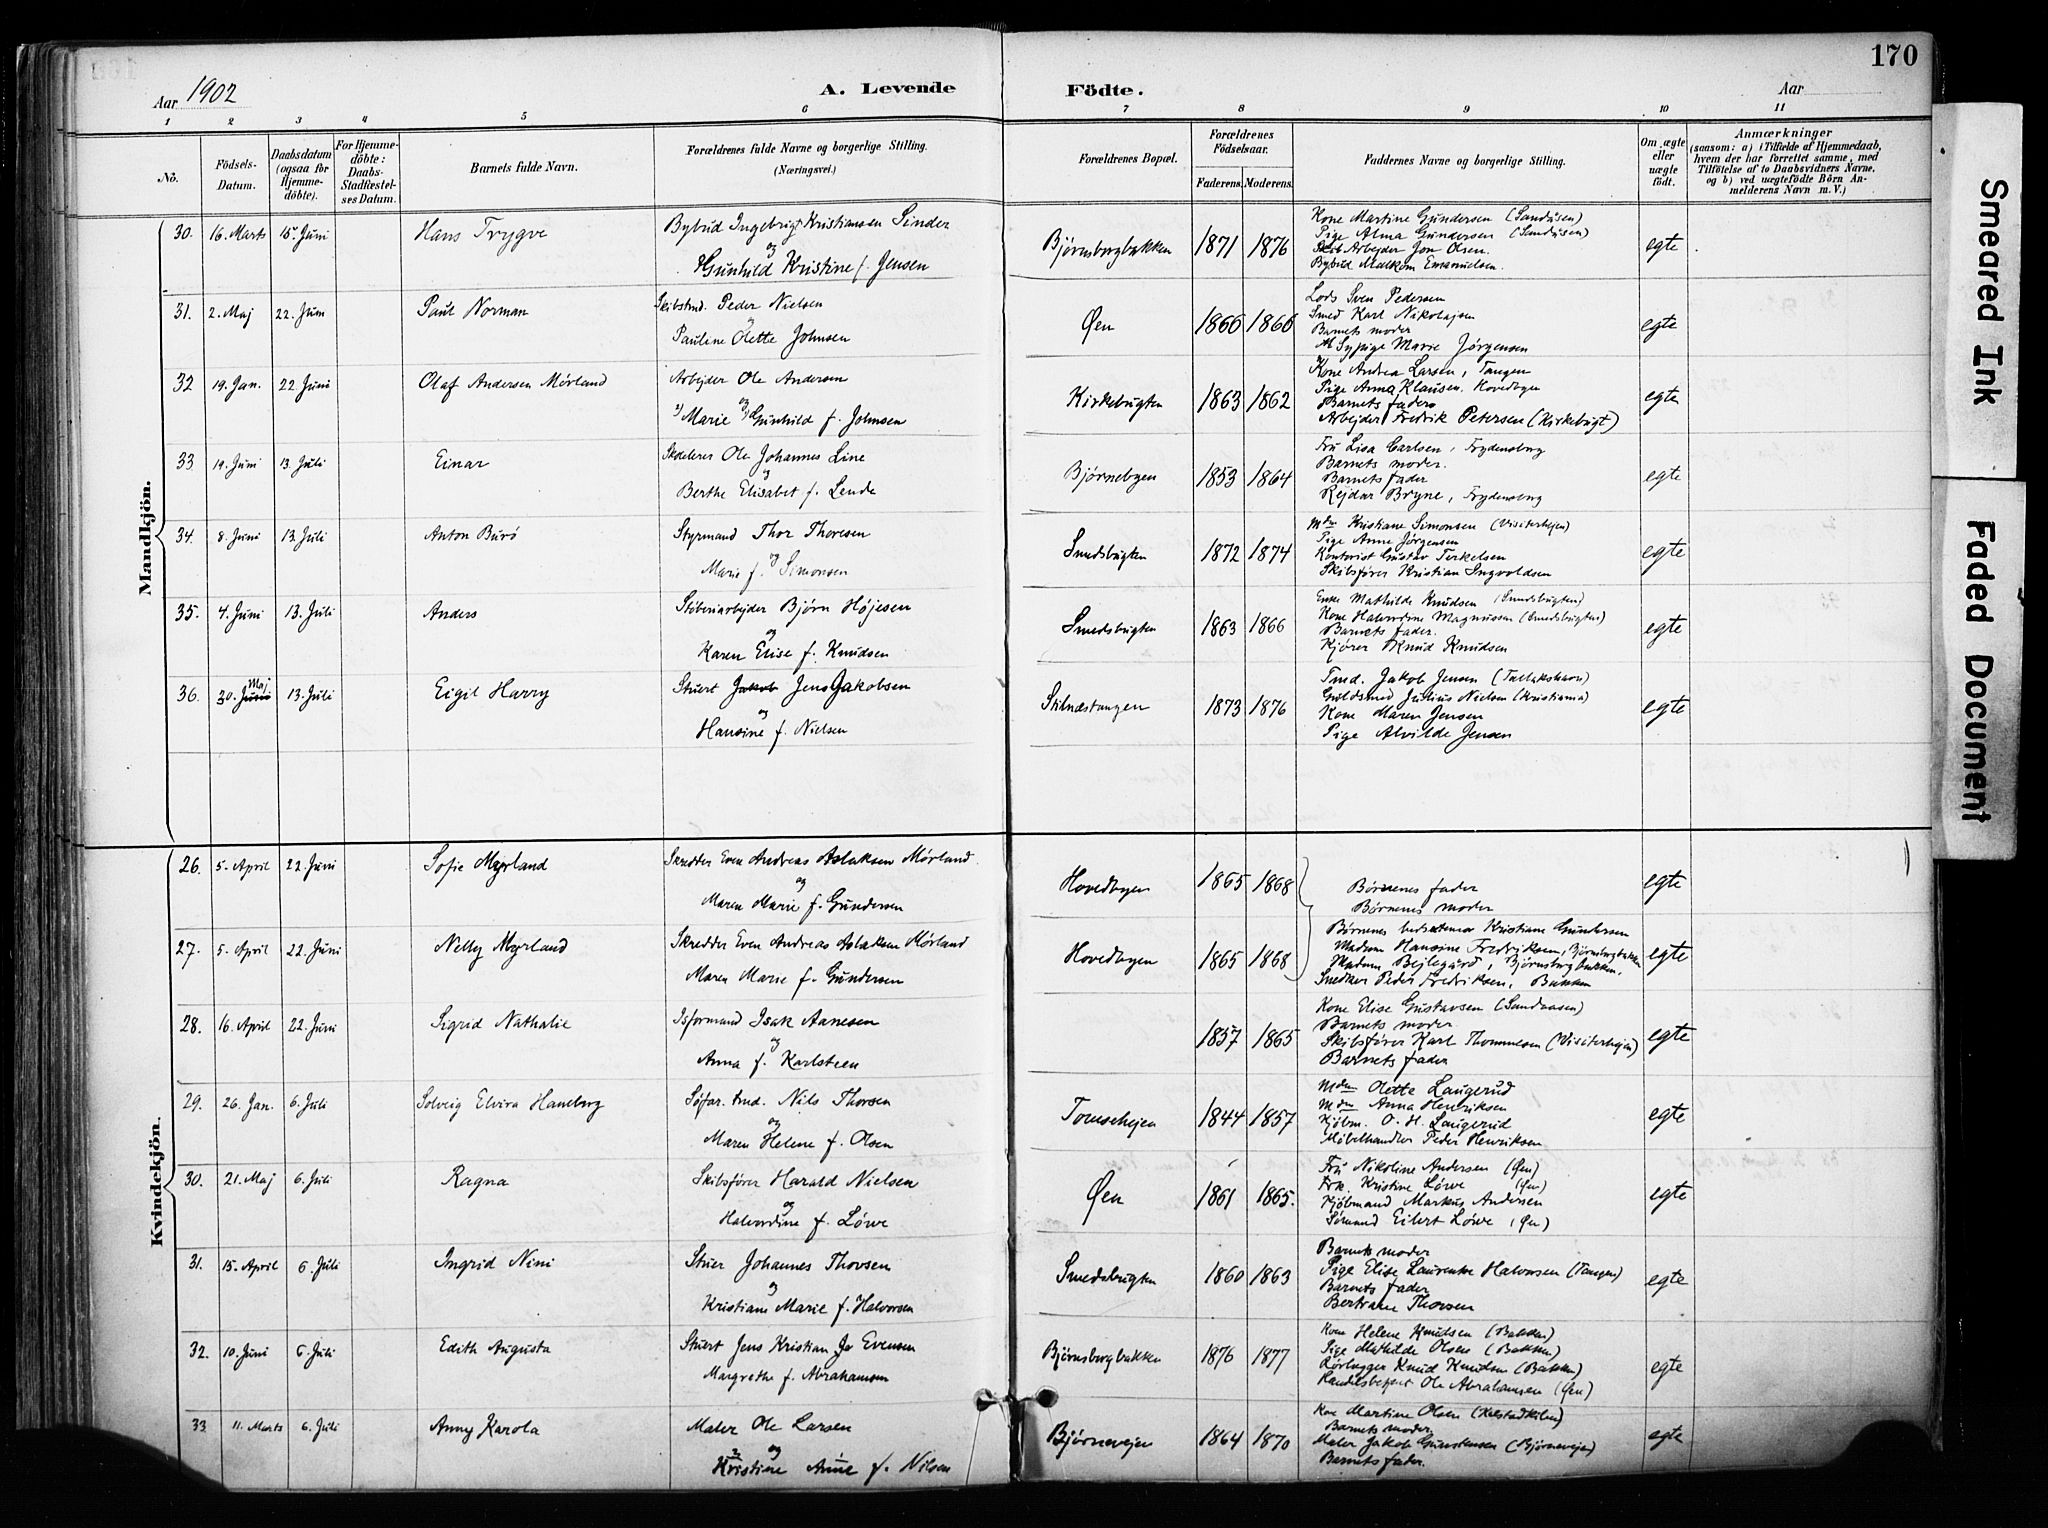 170
Aar 1902
A. Levende Födte.
Aar
1 2 3 4 5 6 7 8 9 10 11
No.
Födsels-Datum.
Daabsdatum (ogsaa for Hjemme-döbte).
For Hjemme-döbte: Daabs-Stadfæstel-ses Datum.
Barnets fulde Navn.
Forældrenes fulde Navne og borgerlige Stilling.
(Næringsvei.)
Forældrenes Bopæl.
Forældrenes Födselsaar.
Faderens. Moderens.
Faddernes Navne og borgerlige Stilling.
Om ægte eller uægte födt.
Anmærkninger
(saasom: a) i Tilfælde af Hjemmedaab, hvem der har forrettet samme, med Tilföielse af to Daabsvidners Navne, og b) ved uægtefödte Börn An-melderens Navn m. V.)
Mandkjön.
30. 16. Marts 15. Juni Hans Trygve Bybud Ingebrigt Kristiansen Sinder
og
Gunhild Kristine f. Jensen
Bjørnsborgbakken 1871 1876
Kone Martine Gundersen (Sandåsen)
Pige Alma Gundersen (Sandåsen)
Arbejder Jon Olsen.
Bybud Malkom Emanuelsen.
egte
31. 2. Maj 22. Juni Paul Norman Skibstmd. Peder Nielsen
og
Pauline Olette Johnsen
Øen 1866 1866
Lods Sven Pedersen
Smed Karl Nikolajsen
Barnets moder
Sypige Marie Jörgensen
egte
32 19. Jan. 22 Juni Olaf Andersen Mørland Arbejder Ole Andersen
og
Marie Gunhild f. Johnsen
Kirkebugten 1863 1862
Kone Andrea Larsen, Tangen
Pige Anna Klausen, Hovedbyen
Barnets fader
Arbejder Fredrik Petersen (Kirkebugt)
egte
33 19. Juni 13. Juli Einar Skolelærer Ole Johannes Line
og
Berthe Elisabet f. Lende
Bjørnebyen 1853 1864
Fru Lisa Carlsen, Frydensborg
Barnets moder.
Barnets fader
Rejdar Bryne, Frydensborg
egte
34. 8. Juni 13. Juli Anton Burö Styrmand Thor Thoresen
og
Marie f. Simonsen
Smedsbugten 1872 1874
Mdm Kristiane Simonsen (Visiterhejen)
Pige Anne Jørgensen
Kontorist Gustav Terkelsen
Skibsfører Kristian Ingvoldsen
egte
35. 4. Juni 13. Juli Anders Støberiarbejder Bjørn Højesen
og
Karen Elise f. Knudsen
Smedsbugten 1863 1866
Enke Mathilde Knudsen (Smedsbugten)
Kone Halvordine Magnussen (Smedsbugten)
Barnets fader.
Kjører Knud Knudsen
egte
36. 30. Juni Maj 13. Juli Eigil Harry Stuert Jakob Jens Jakobsen
og
Hansine f. Nielsen
Stilnæstangen 1873 1876
Tmd. Jakob Jensen (Tallakshavn)
Guldsmed Julius Nielsen (Kristiania)
Kone Maren Jensen
Pige Alvilde Jensen
egte
Kvindekjön.
26. 5. April 22. Juni Sofie Myrland Skredder Even Andreas Aslaksen Mørland
og
Maren Marie f. Gundersen
Hovedbyen 1865 1868
Børnenes fader
Børnenes moder
egte
27. 5. April 22. Juni Nelly Myrland Skredder Even Andreas Aslaksen Mørland
Maren Marie f. Gundersen
Hovedbyen 1865 1868
Børnenes bedstemor Kristiane Gundersen
Madam Hansine Fredriksen, Bjørnsborgbakken
Madam Bejlegård, Bjørnsborgbakken,
Peder Fredriksen, Bakken
egte
28. 16. April 22. Juni Sigrid Nathalie Isformand Isak Aanesen
og
Anna f. Karlsteen
1857 1865
Kone Elise Gustavsen (Sandaasen)
Barnets moder
Skibsfører Karl Thommesen (Visiterhejen)
Barnets fader
egte
29. 26. Jan. 6. Juli Solveig Elvira Haneborg Søfar. tmd. Nils Thorsen
og
Maren Helene f. Olsen
Toresehejen 1844 1857
Mdm Olette Laugerud
Mdm Anna Henriksen
Kjøbm. O. H. Laugerud
Møbelhandler Peder Henriksen
egte
30. 21. Maj 6. Juli Ragna Skibsfører Harald Nielsen
og
Halvordine f. Löwe
Øen 1861 1865.
Fru Nikoline Andersen (Øen)
Frk. Kristine Löwe (Øen)
Kjöbmand Markus Andersen
Sømand Eilert Löwe (Øen)
egte
31. 15. April 6. Juli Ingrid Nini Stuer Johannes Thorsen
og
Kristiane Marie f. Halvorsen
Smedsbugten 1860 1863
Barnets moder
Pige Elise Laurentze Halvorsen (Tangen)
Barnets fader
Bertram Thorsen
egte
32. 10. Juni 6. Juli Edith Augusta Stuert Jens Kristian Jo Evensen
Margrethe f. Abrahamsen
Bjørnsborgbakken 1876 1877
Kone Helene Knudsen (Bakken)
Pige Mathilde Olsen (Bakken)
Rørlægger Knud Knudsen (Bakken)
Handelsbetjent Ole Abrahamsen (Øen)
egte
33 11. Marts 6. Juli Anny Karola Maler Ole Larsen
og
Kristine Anne f. Nilsen
Bjørnevejen 1864 1870
Kone Martine Olsen (Kolstadkilen)
Barnets moder
Maler Jakob Gunstensen (Bjørnevejen)
Barnets fader.
egte
Smeared Ink
Faded Document